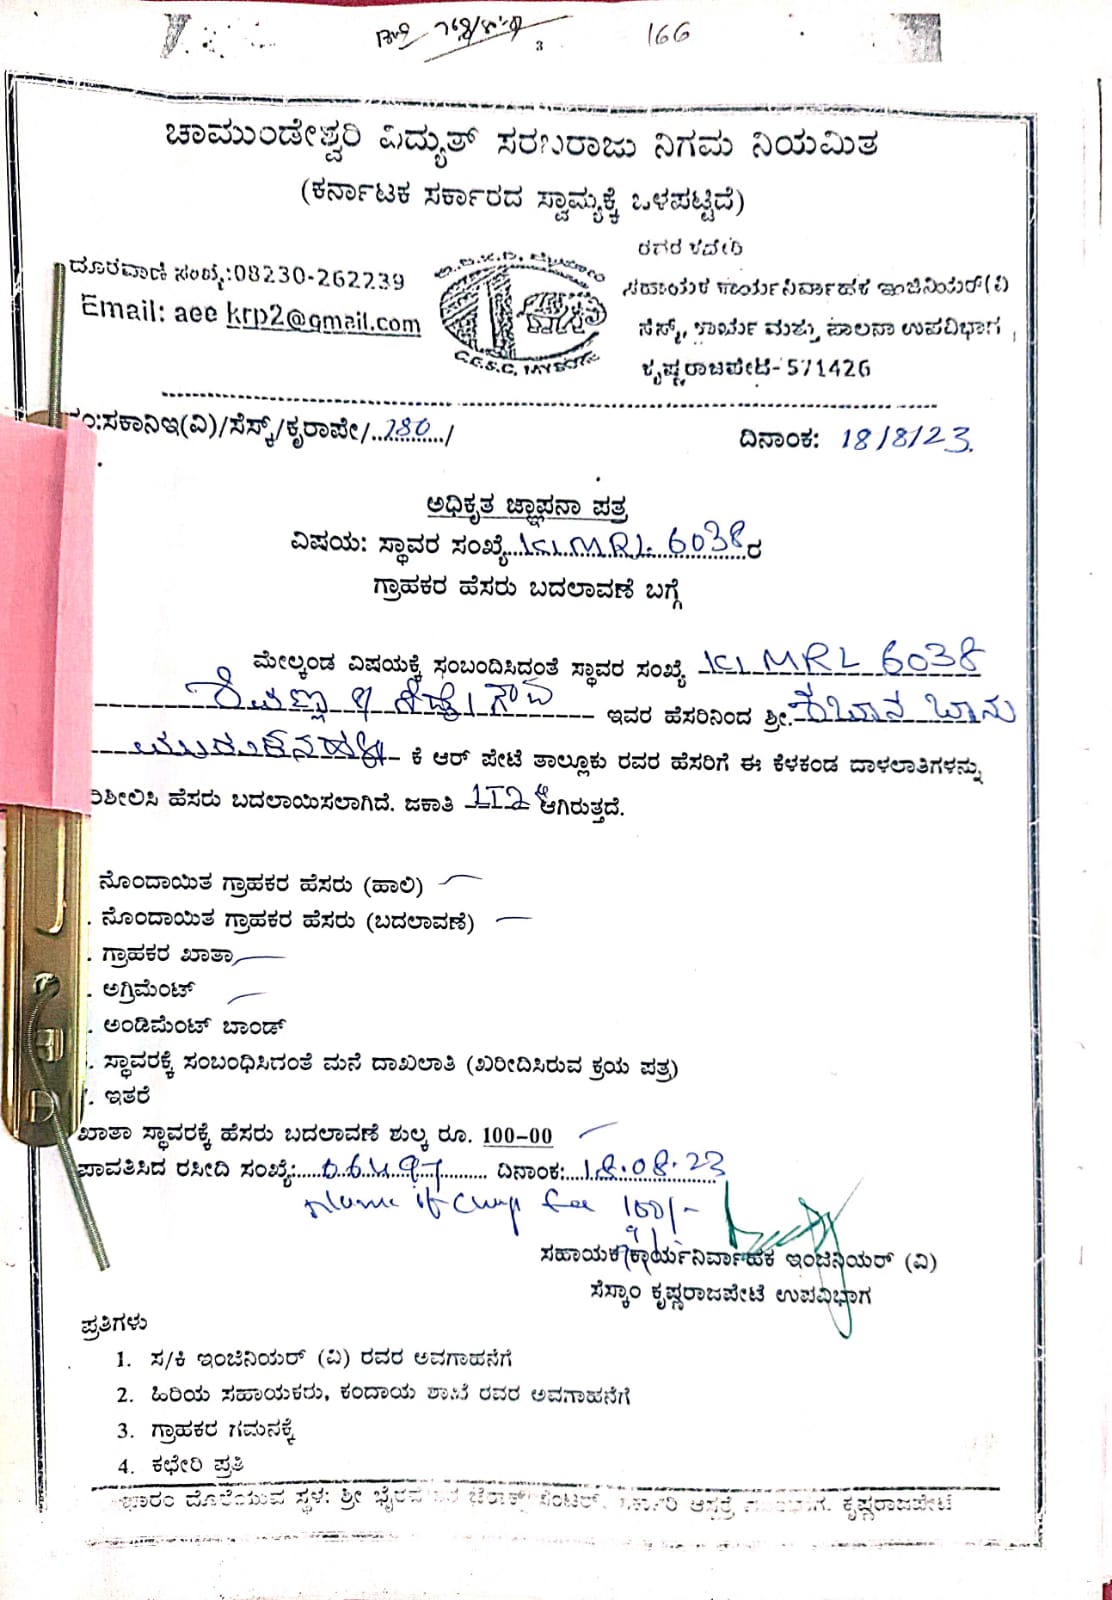 166
3
ಚಾಮುಂಡೇಶ್ವರಿ ವಿದ್ಯುತ್ ಸರಬರಾಜು ನಿಗಮ ನಿಯಮಿತ
(ಕರ್ನಾಟಕ ಸರ್ಕಾರದ ಸ್ವಾಮ್ಯಕ್ಕೆ ಒಳಪಟ್ಟಿದೆ)
ದೂರವಾಣಿ ಸಂಖ್ಯೆ:08230-262239
Email: aee krp2@gmail.com
C.E.S.C, MYSORE
ಸಹಾಯಕ ಕಾರ್ಯನಿರ್ವಾಹಕ ಇಂಜಿನಿಯರ್(ವಿ
ಸೆಸ್ಕ್, ಕಾರ್ಯ ಮತ್ತು ಪಾಲನಾ ಉಪವಿಭಾಗ ,
ಕೃಷ್ಣರಾಜಪೇಟೆ-571426
ಸಂ:ಸಕಾನಿಇ(ವಿ)/ಸೆಸ್ಕ್/ಕೃರಾಪೇ/..280../
ದಿನಾಂಕ: 18/8/23.
ಅಧಿಕೃತ ಜ್ಞಾಪನಾ ಪತ್ರ
ವಿಷಯ: ಸ್ಥಾವರ ಸಂಖ್ಯೆ...KLMRL 6038ರ
ಗ್ರಾಹಕರ ಹೆಸರು ಬದಲಾವಣೆ ಬಗ್ಗೆ
ಮೇಲ್ಕಂಡ ವಿಷಯಕ್ಕೆ ಸಂಬಂದಿಸಿದಂತೆ ಸ್ಥಾವರ ಸಂಖ್ಯೆ KLMRL 6038
ಇವರ ಹೆಸರಿನಿಂದ ಶ್ರೀ. ಶಬಾನ ಬಾನು
ಕೆ ಆರ್ ಪೇಟೆ ತಾಲ್ಲೂಕು ರವರ ಹೆಸರಿಗೆ ಈ ಕೆಳಕಂಡ ದಾಳಲಾತಿಗಳನ್ನು
ರಿಶೀಲಿಸಿ ಹೆಸರು ಬದಲಾಯಿಸಲಾಗಿದೆ. ಜಕಾತಿ LT2 ಆಗಿರುತ್ತದೆ.
ನೊಂದಾಯಿತ ಗ್ರಾಹಕರ ಹೆಸರು (ಹಾಲಿ)
. ನೊಂದಾಯಿತ ಗ್ರಾಹಕರ ಹೆಸರು (ಬದಲಾವಣೆ)
. ಗ್ರಾಹಕರ ಖಾತಾ
. ಅಗ್ರಿಮೆಂಟ್
. ಅಂಡಿಮೆಂಟ್ ಬಾಂಡ್
. ಸ್ಥಾವರಕ್ಕೆ ಸಂಬಂಧಿಸಿದಂತೆ ಮನೆ ದಾಖಲಾತಿ (ಖರೀದಿಸಿರುವ ಕ್ರಯ ಪತ್ರ)
. ಇತರೆ
ಖಾತಾ ಸ್ಥಾವರಕ್ಕೆ ಹೆಸರು ಬದಲಾವಣೆ ಶುಲ್ಕ ರೂ. 100-00
ಪಾವತಿಸಿದ ರಸೀದಿ ಸಂಖ್ಯೆ:.............. ದಿನಾಂಕ:...18.08.23
Name of Chng fee 100/-
ಸಹಾಯಕ ಕಾರ್ಯನಿರ್ವಾಹಕ ಇಂಜಿನಿಯರ್ (ವಿ)
ಸೆಸ್ಕಾಂ ಕೃಷ್ಣರಾಜಪೇಟೆ ಉಪವಿಭಾಗ
ಪ್ರತಿಗಳು
1. ಸ/ಕಿ ಇಂಜಿನಿಯರ್ (ವಿ) ರವರ ಅವಗಾಹನೆಗೆ
2. ಹಿರಿಯ ಸಹಾಯಕರು, ಕಂದಾಯ ಶಾಖೆ ರವರ ಅವಗಾಹನೆಗೆ
3. ಗ್ರಾಹಕರ ಗಮನಕ್ಕೆ
4. ಕಛೇರಿ ಪ್ರತಿ
ದೊರೆಯುವ ಸ್ಥಳ: ಶ್ರೀ ಕೃಷ್ಣರಾಜಪೇಟೆ